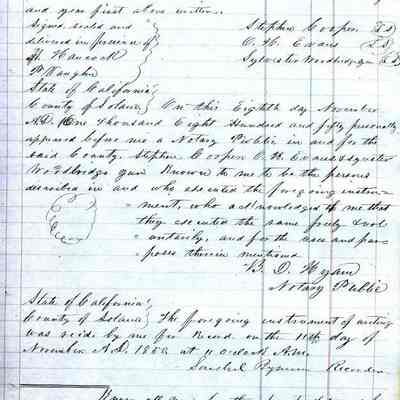 and year first above written
Signed, sealed and } Stephen Cooper {LS}
delivered in presence of } C. H. Evans {LS}
Hancock } Sylvester Woodbridge Jun {LS}
P. Vaughn
State of California }
County of Solano } On this Eighth day November
A.D. One thousand Eight Hundred and fifty personally
appeared before me a Notary Public in and for the
said County. Stephen Cooper C. H. Evans & Sylvester
Woodbridge Jun Known to me to be the persons
described in and who executed the foregoing instru=
=ment, who acknowledged to me that
they executed the same freely & vol
=untarily, and for the uses and pur=
=poses therein mentioned
B. D. Hyam
Notary Public
State of California }
County of Solano } The foregoing instrument of writing
was by me for Record on the 11th day of
November A.D. 1850 at o'clock
Recorder